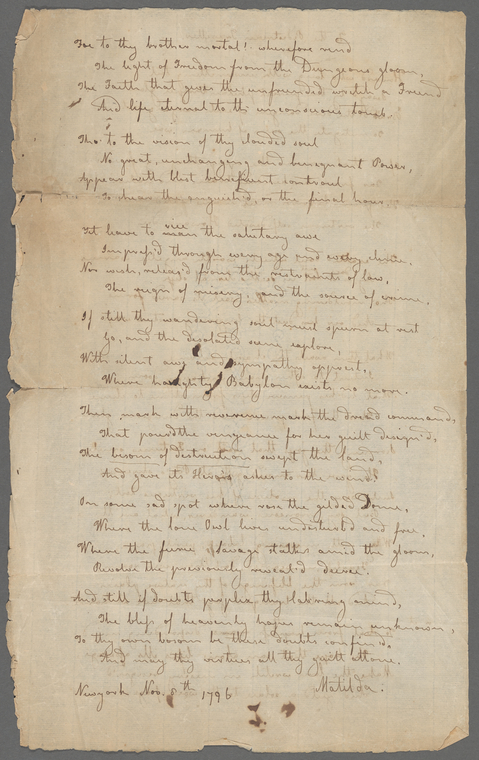 Foe to thy brother mortal! wherefore rend
The light of Freedom from the Dungeons gloom,
The Faith that gives the unfriended wretch a Friend
And life eternal to th' unconscious tomb.
Tho' to the vision of thy clouded soul
No great, unchanging and benignant Power,
Appear with blest beneficent controul
To chear the anguish'd, or the final hour
Yet leave to vice the salutary awe
Impress'd through every age and every clime.
Nor wish, releas'd from the restraints of law,
The reign of misery, and the source of crime.
If still thy wandering soul must spurn at rest
Go, and the desolated scene explore,
With silent awe and sympathy opprest,
Where haughty Babylon exists no more.
There mark with reverence mark the dread command,
That pour'd the vengeance for her guilt design'd,
The besom of destruction swept the land,
And gave its ashes to the wind.
On some sad spot where rose the gilded Dome,
Where the lone Owl lives undisturb'd and free,
Where the fierce Savage stalks amid the gloom,
Revolve the previously reveal'd decree.
And still if doubts perplex thy lab'ring mind,
The bliss of heavenly hopes remain unknown,
To thy own bosom be those doubts confin'd,
And may thy virtues all thy guilt atone.
Newyork Nov. 8th 1796 Matilda.